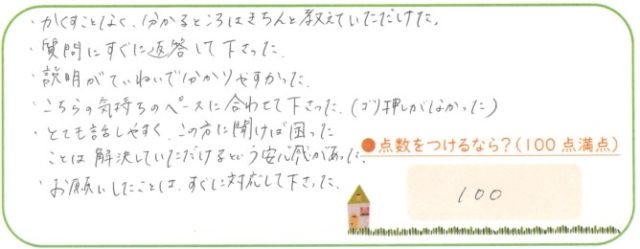 ・かくすことなく、分かるところはきちんと教えていただけた。
・質問にすぐに返答して下さった。
・説明がていねいで分かりやすかった。
・こちらの気持ちのペースに合わせて下さった。(ゴリ押しがなかった)
・とても話しやすく、この方に聞けば困った
ことは解決していただけるという安心感があった。
・お願いしたことは、すぐに対応して下さった。
●点数をつけるなら?(100点満点)
100